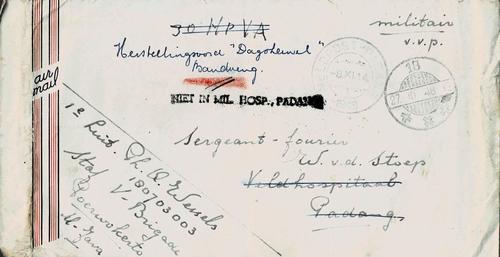 30 HPVA
Herstellingsoord "Dagoheuvel"
Bandoeng.
militair
v.v.p.
NIET IN MIL. HOSP., PADANG
10
27.10.48
air
mail
Sergeant-fourier
W. v. d. Stoep
Veldhospitaal
Padang.
1e Luit. Ph. A. Wessels
180103003
Staf V-Brigade
Poerwokerto
M-Java